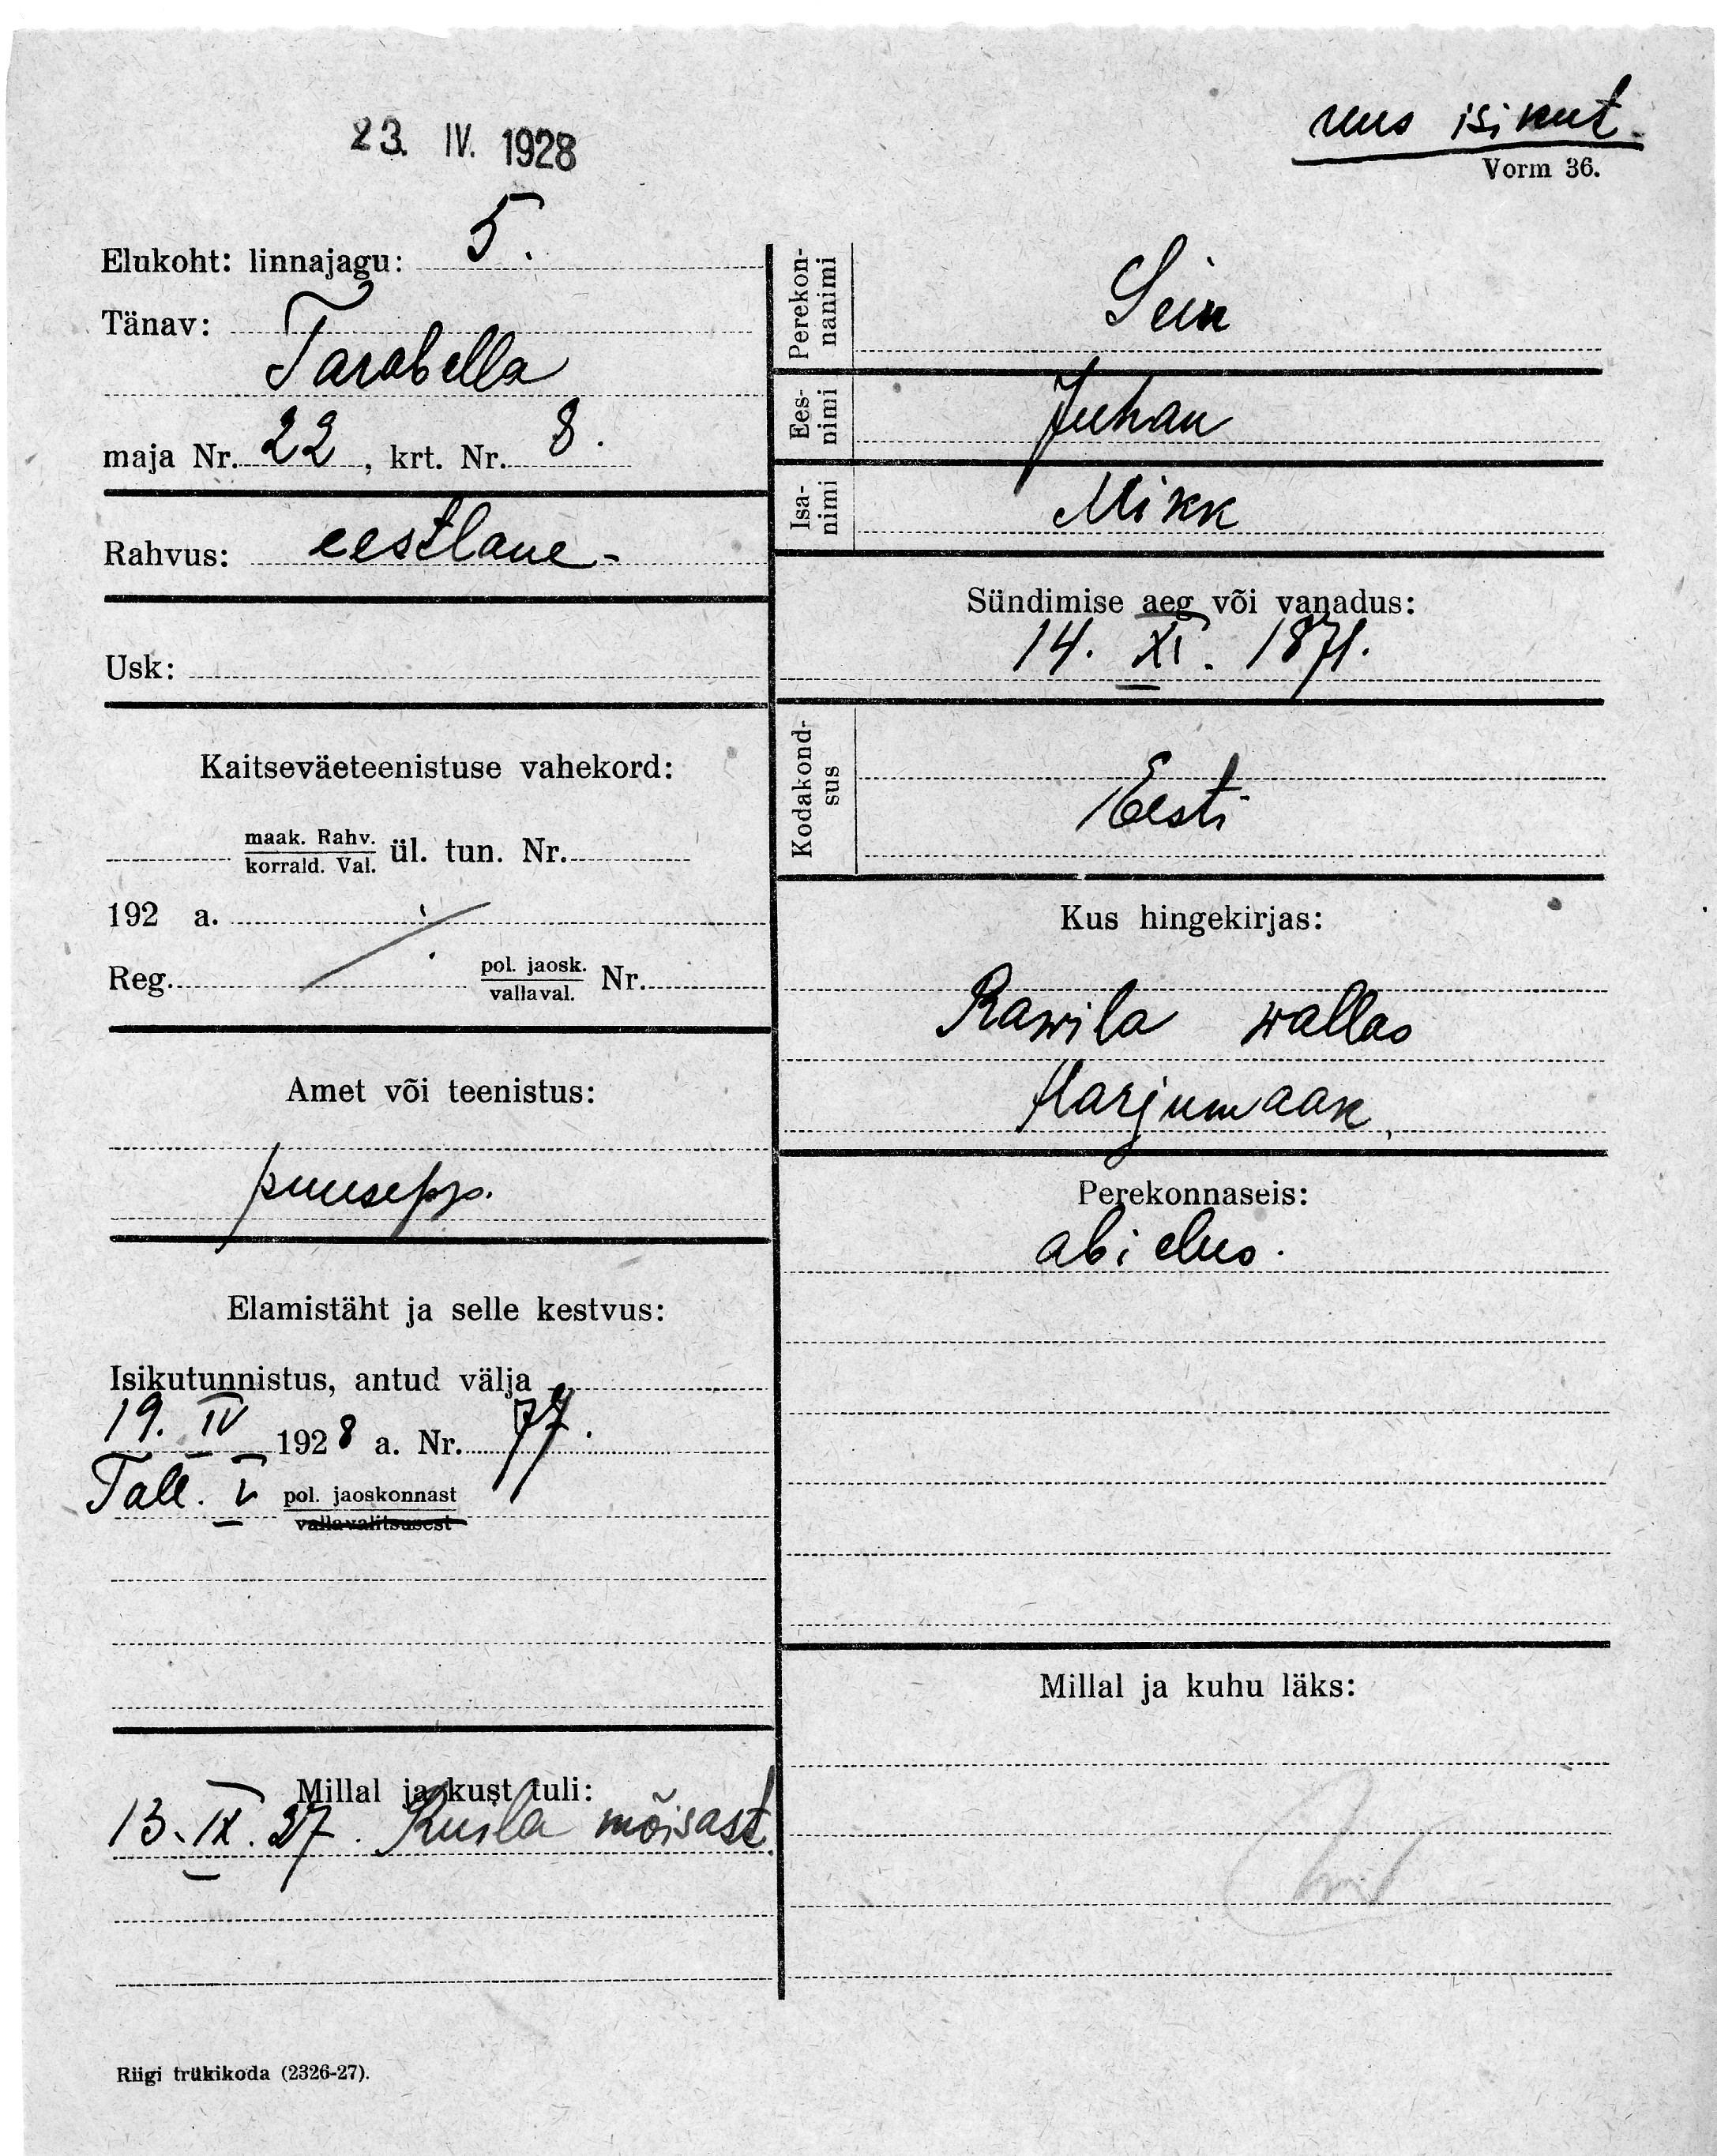 uus isikut.
Vorm 36.
23. IV. 1928
Elukoht: linnajagu: 5.
Tänav:
Tarabella
maja Nr. 22, krt. Nr. 8.
Rahvus: eestlane -
Usk:
Kaitseväeteenistuse vahekord:
maak. Rahv.
korrald. Val.
ül. tun. Nr.
192 a.
Reg.
pol. jaosk.
vallaval.
Nr.
Amet või teenistus:
puusepp.
Elamistäht ja selle kestvus:
Isikutunnistus, antud välja
19. IV 1928 a. Nr. 77.
Tall. V pol. jaoskonnast
vallavalitsusest
Millal ja kust tuli:
13. IX. 27. mõisast
Riigi trükikoda (2326-27).
Perekon-
nanimi
Sein
Ees-
nimi
Juhan
Isa-
nimi
Mikk
Sündimise aeg või vanadus:
14. XI. 1871.
Kodakond-
sus
Eesti
Kus hingekirjas:
Rawila wallas
Harjumaak
Perekonnaseis:
abi elus.
Millal ja kuhu läks: